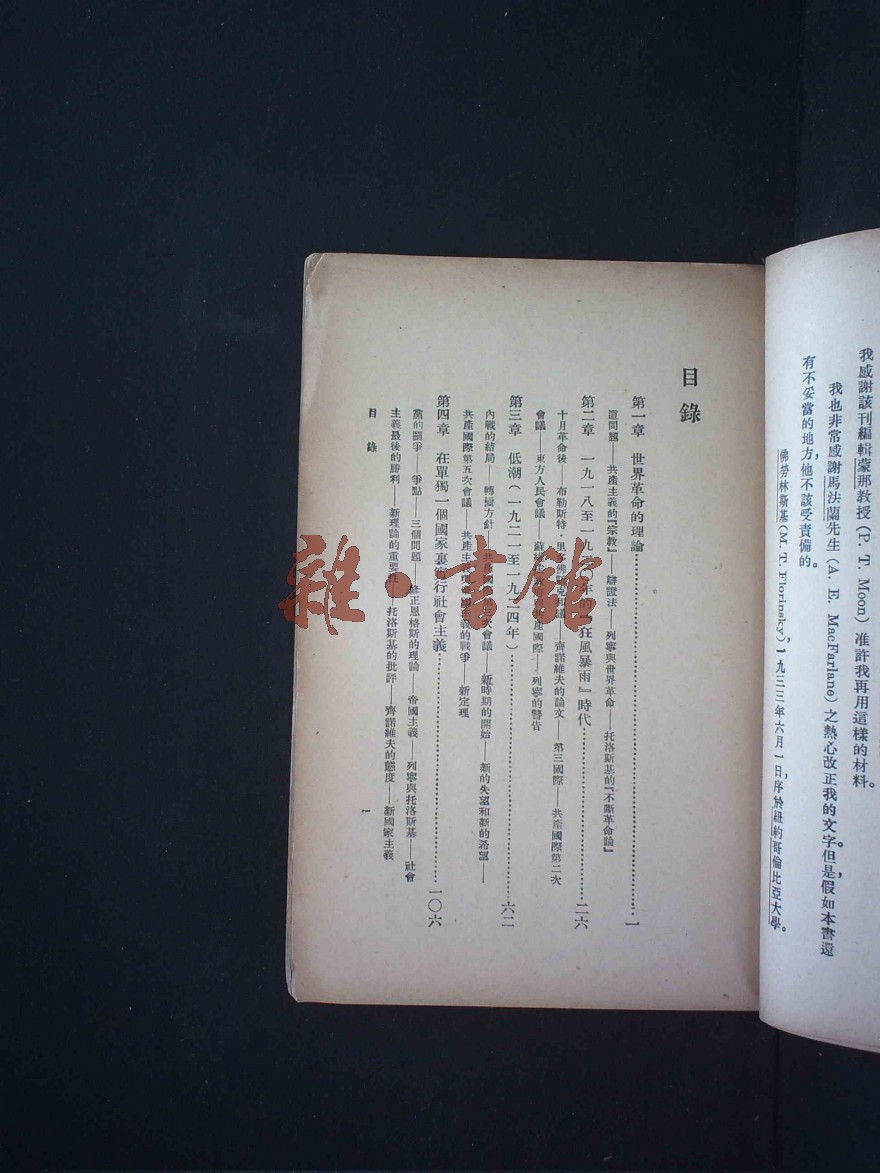 我感謝該刊編輯蒙那教授(P. T. Moon)准許我再用這樣的材料。
我也非常感謝馬法蘭先生(A. E. MacFarlane)之熱心改正我的文字。但是,假如本書還
有不妥當的地方,他不該受責備的。
佛勞林斯基(M. T. Florinsky),一九三三年六月一日,序於紐約哥倫比亞大學。
目錄
第一章 世界革命的理論……一
這問題——共產主義的『宗教』——辯證法——列寧與世界革命——托洛斯基的『不斷革命論』
第二章 一九一八至一九二〇年的『狂風暴雨』時代……二六
十月革命後——布勒斯特·里多佛斯克和議——齊諾維夫的論文——第三國際——共產國際第二次
會議——東方人民會議——蘇維埃政府與共產國際——列寧的警告
第三章 低潮(一九二一至一九二四年)……六二
內戰的結局——轉變方針——共產國際 會議——新時期的開始——新的失望和新的希望——
共產國際第五六會議——共產主義與帝國主義的戰爭——新定理
第四章 在單獨一個國家裏實行社會主義……一〇六
黨的鬭爭——爭點——三個問題——修正恩格斯的理論——帝國主義——列寧與托洛斯基——社會
主義最後的勝利——新理論的重要性——托洛斯基的批評——齊諾維夫的態度——新國家主義
目錄 一
雜·書館